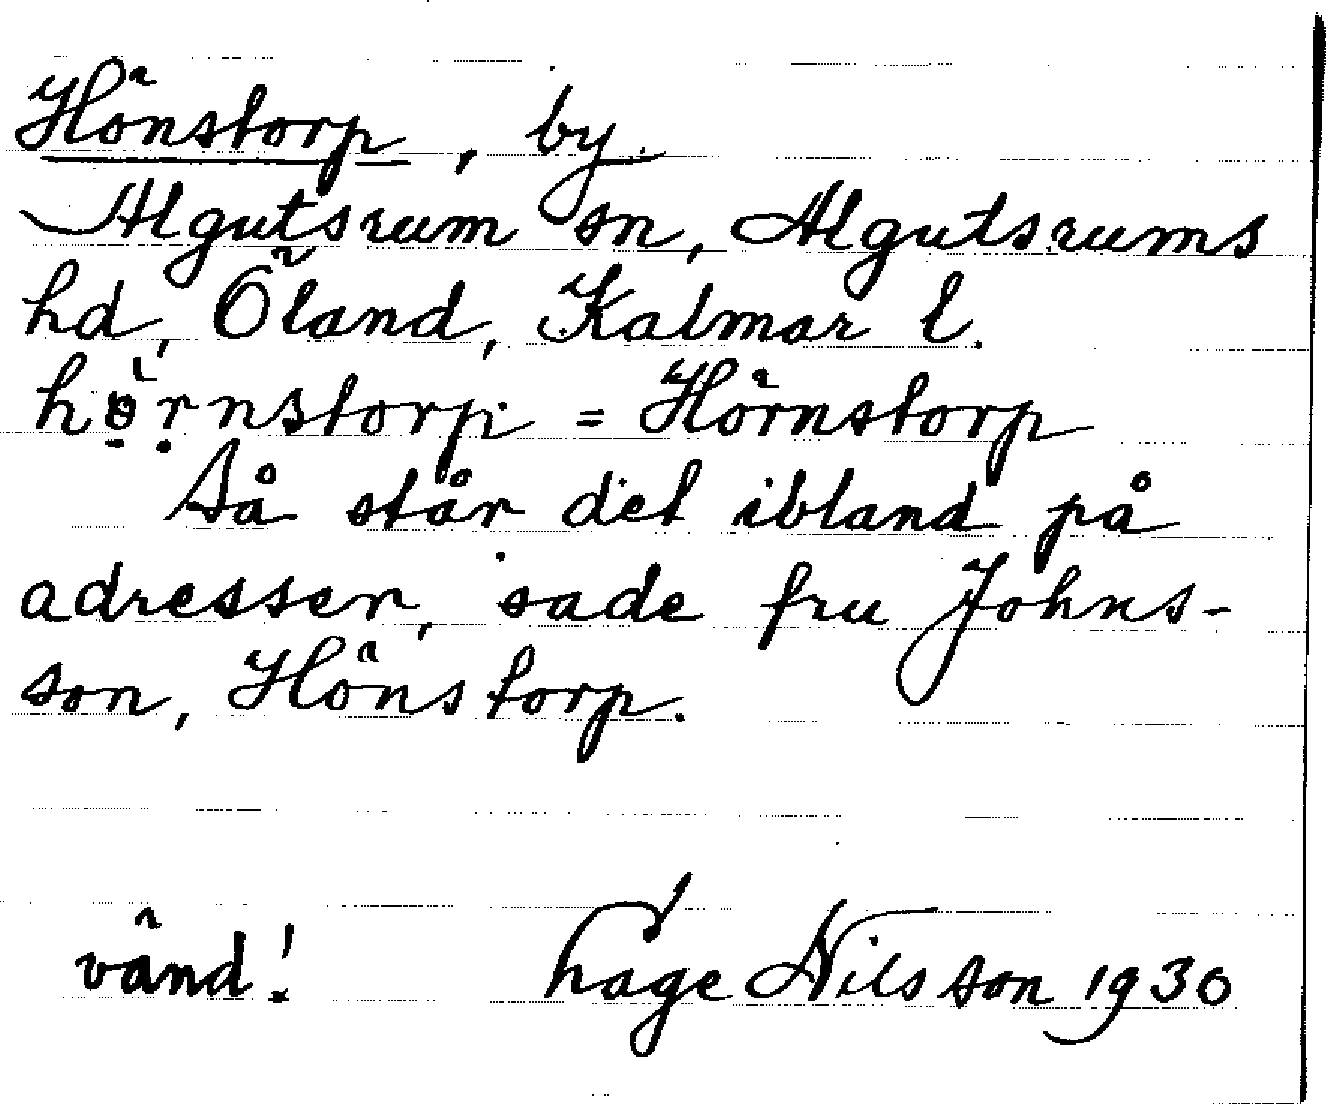 Hönstorp, by.
Algutsrum sn, Algutsrums
hd, Öland, Kalmar l.
hö̀rnstorp = Hörnstorp
Så står det ibland på
adresser, sade fru Johns-
son, Hönstorp.
vänd! Åage Nilsson 1930